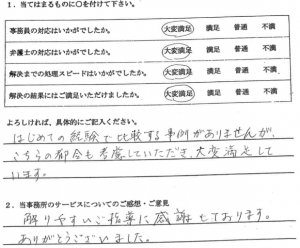 1. 当てはまるものに○を付けて下さい。
事務員の対応はいかがでしたか。 大変満足 満足 普通 不満
弁護士の対応はいかがでしたか。 大変満足 満足 普通 不満
解決までの処理スピードはいかがでしたか。 大変満足 満足 普通 不満
解決の結果にはご満足いただけましたか。 大変満足 満足 普通 不満
よろしければ、具体的にご記入ください。
はじめての経験で比較する事例がありませんが、
こちらの都合も考慮していただき、大変満足して
います。
2. 当事務所のサービスについてのご感想・ご意見
解りやすいご指導に感謝しております。
ありがとうございました。